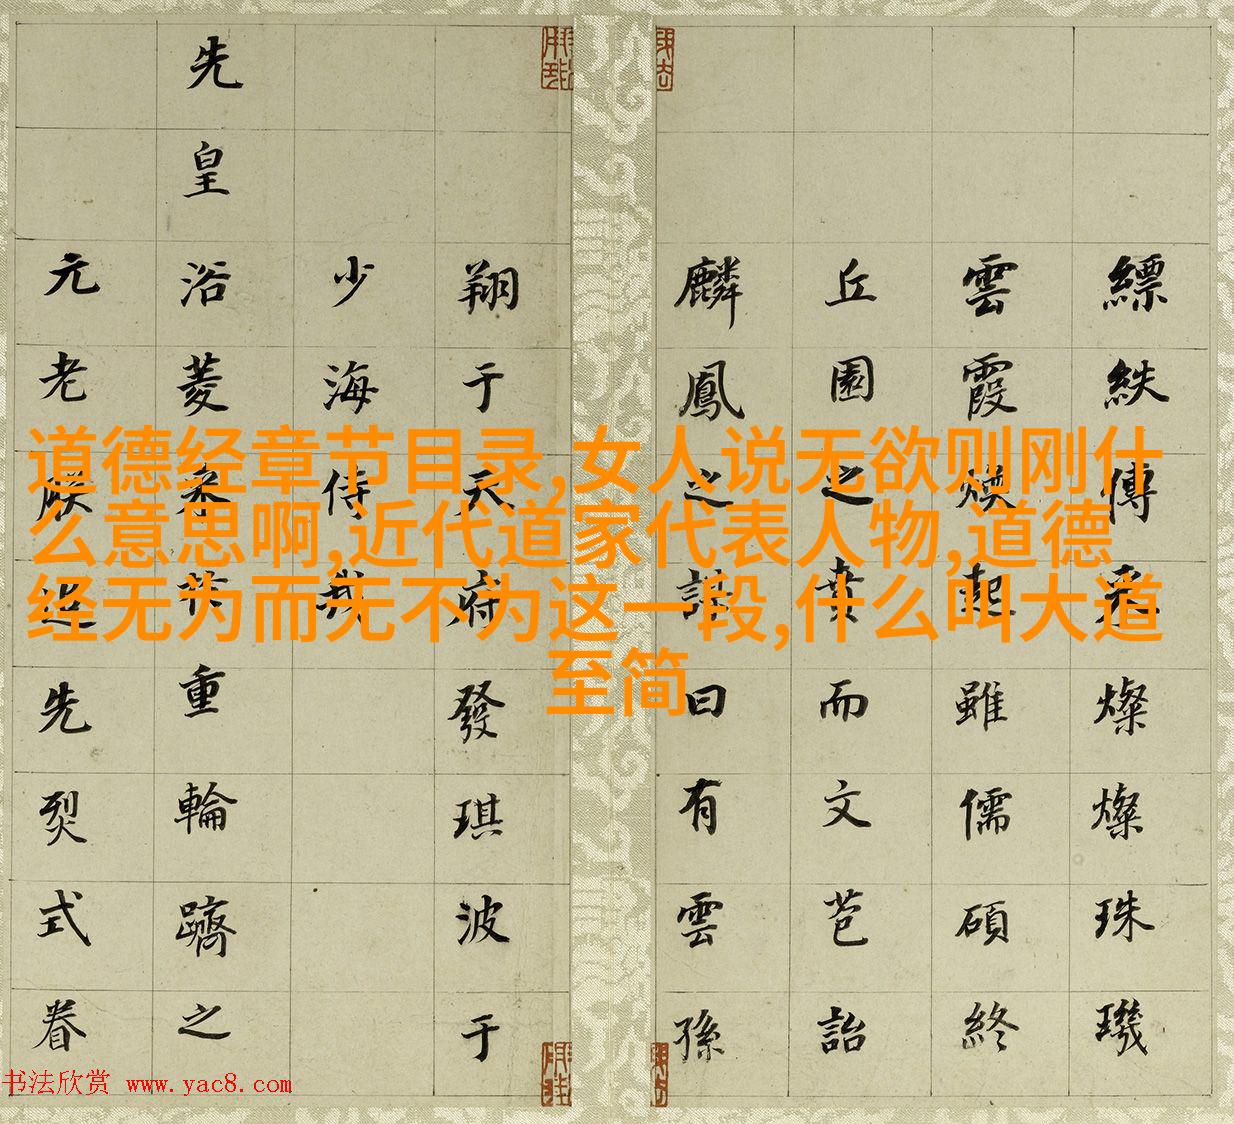 道德经章节目录,女人说无欲则刚什
么意思啊,近代道家代表人物,道德
经无为而无不为这一段,什么叫大道
至简
縹紩傳燦燦珠璣
雲霞煥起雖儒碩終
丘園之賁而文芭詒
麟鳳之曰有雲孫
翔于天府發琪波于
少海侍哉
先皇浴菱重輪躋之
元老先烈式眷
书法欣赏 www.yac8.com